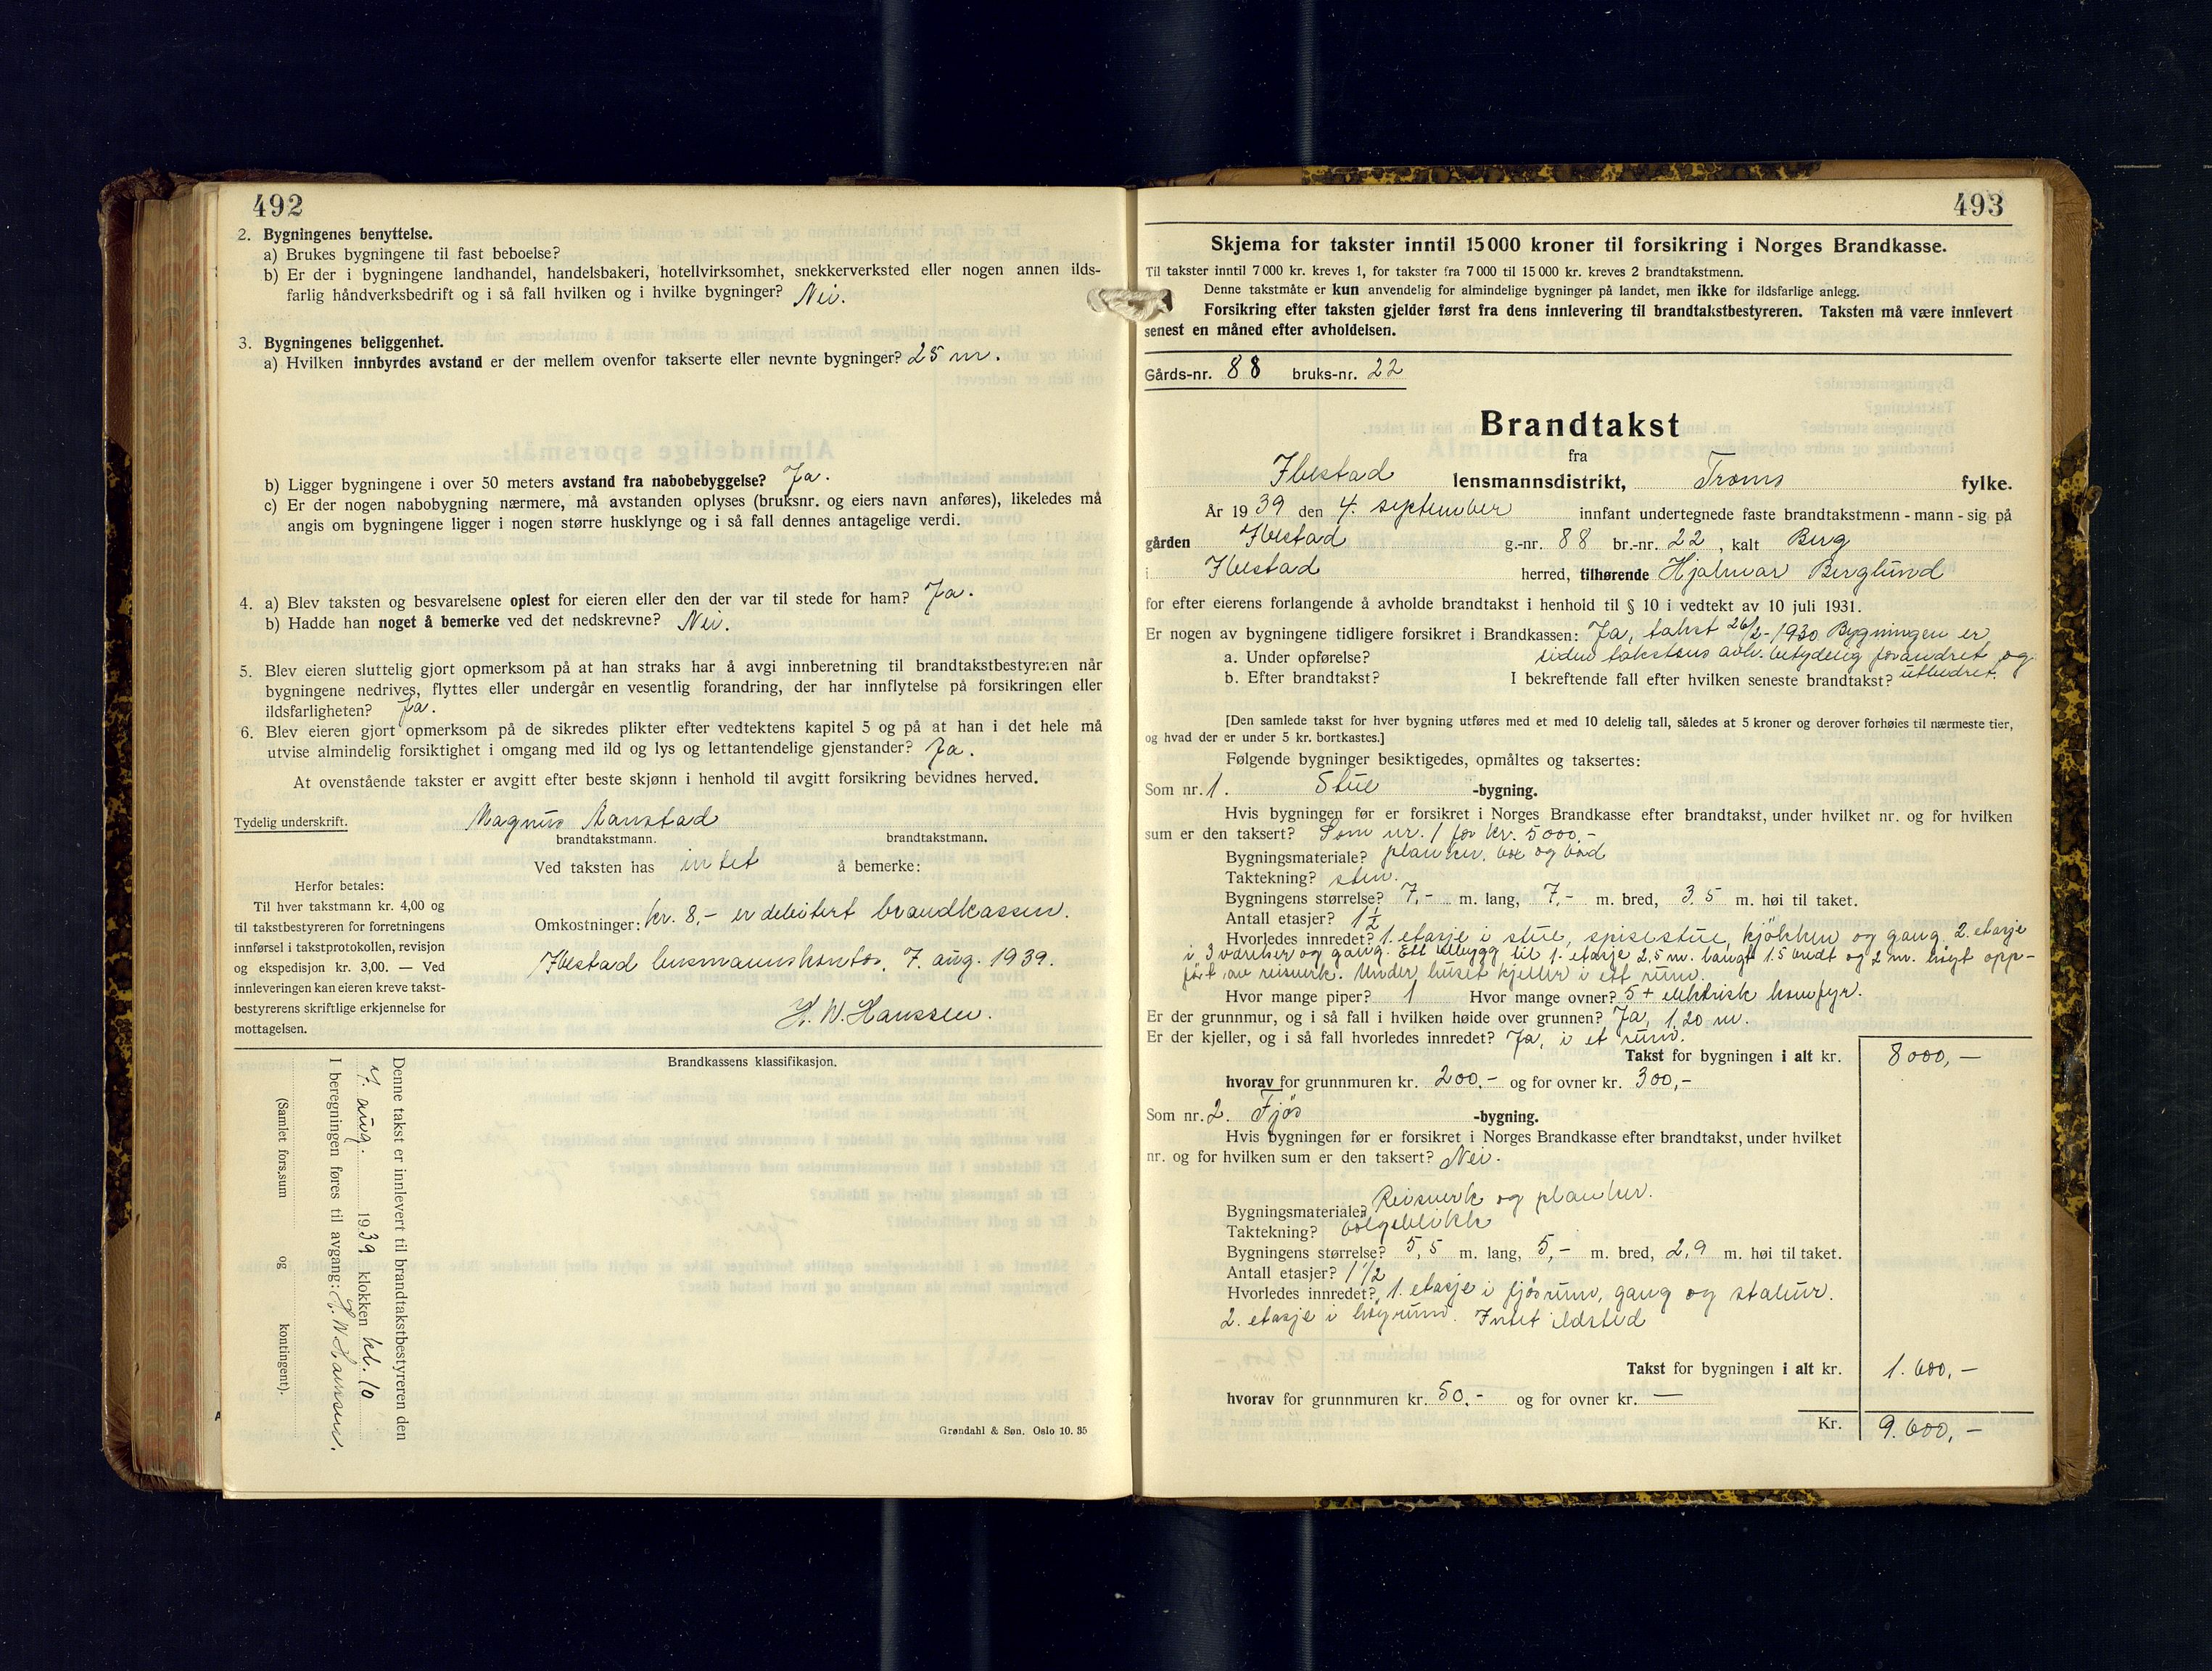 492
2. Bygningenes benyttelse.
a) Brukes bygningene til fast beboelse?
b) Er der i bygningene landhandel, handelsbakeri, hotellvirksomhet, snekkerverksted eller nogen annen ilds-
farlig håndverksbedrift og i så fall hvilken og i hvilke bygninger? Nei.
3. Bygningenes beliggenhet.
a) Hvilken innbyrdes avstand er der mellem ovenfor takserte eller nevnte bygninger? 25 m.
b) Ligger bygningene i over 50 meters avstand fra nabobebyggelse? Ja.
c) Er der nogen nabobygning nærmere, må avstanden oplyses (bruksnr. og eiers navn anføres), likeledes må
angis om bygningene ligger i nogen større husklynge og i så fall dennes antagelige verdi.
4. a) Blev taksten og besvarelsene oplest for eieren eller den der var til stede for ham? Ja.
b) Hadde han noget å bemerke ved det nedskrevne? Nei.
5. Blev eieren sluttelig gjort opmerksom på at han straks har å avgi innberetning til brandtakstbestyreren når
bygningene nedrives, flyttes eller undergår en vesentlig forandring, der har innflytelse på forsikringen eller
ildsfarligheten? Ja.
6. Blev eieren gjort opmerksom på de sikredes plikter efter vedtektens kapitel 5 og på at han i det hele må
utvise almindelig forsiktighet i omgang med ild og lys og lettantendelige gjenstander? Ja.
At ovenstående takster er avgitt efter beste skjønn i henhold til avgitt forsikring bevidnes herved.
Tydelig underskrift. Magnus
brandtakstmann. brandtakstmann.
Ved taksten has intet å bemerke:
Herfor betales:
Til hver takstmann kr. 4,00 og
til takstbestyreren for forretningens
innførsel i takstprotokollen, revisjon
og ekspedisjon kr. 3,00. — Ved
innleveringen kan eieren kreve takst-
bestyrerens skriftlige erkjennelse for
mottagelsen.
Omkostninger: kr. 8,- er debitert brandkassen.
Ibestad lensmannskontor, 7. aug. 1939.
H. W. Hanssen.
Brandkassens klassifikasjon.
Denne takst er innlevert til brandtakstbestyreren den
7. aug. 1939 klokken kl. 10
I beregningen føres til avgang: H. W Hanssen.
(Samlet fors.sum og kontingent).
Grøndahl & Søn. Oslo 10. 35
493
Skjema for takster inntil 15000 kroner til forsikring i Norges Brandkasse.
Til takster inntil 7000 kr. kreves 1, for takster fra 7000 til 15000 kr. kreves 2 brandtakstmenn.
Denne takstmåte er kun anvendelig for almindelige bygninger på landet, men ikke for ildsfarlige anlegg.
Forsikring efter taksten gjelder først fra dens innlevering til brandtakstbestyreren. Taksten må være innlevert
senest en måned efter avholdelsen.
Gårds-nr. 88 bruks-nr. 22
Brandtakst
fra
Ibestad lensmannsdistrikt, Troms fylke.
År 1939 den 4. september innfant undertegnede faste brandtakstmenn - mann - sig på
gården Ibestad g.-nr. 88 br.-nr. 22, kalt Berg
i Ibestad herred, tilhørende Hjalmar Berglund
for efter eierens forlangende å avholde brandtakst i henhold til § 10 i vedtekt av 10 juli 1931.
Er nogen av bygningene tidligere forsikret i Brandkassen: Ja, takst 26/2-1930 Bygningen er
a. Under opførelse? siden takstens avh. betydelig forandret og
b. Efter brandtakst? I bekreftende fall efter hvilken seneste brandtakst? utbedret.
[Den samlede takst for hver bygning utføres med et med 10 delelig tall, således at 5 kroner og derover forhøies til nærmeste tier,
og hvad der er under 5 kr. bortkastes.]
Følgende bygninger besiktigedes, opmåltes og taksertes:
Som nr. 1. Stue -bygning.
Hvis bygningen før er forsikret i Norges Brandkasse efter brandtakst, under hvilket nr. og for hvilken
sum er den taksert? Som nr. 1 for kr. 5000,-
Bygningsmateriale? planker, og bod
Taktekning? sten.
Bygningens størrelse? 7,- m. lang, 7,- m. bred, 3.5 m. høi til taket.
Antall etasjer? 1 ½
Hvorledes innredet? 1. etasje i stue, spisestue, kjökken og gang. 2. etasje
i 3 værelser og gang. Ett tilbygg til 1. etasje 2,5 m. langt 1.5 bredt og 2 m. höyt opp-
fört av reisverk. Under huset kjeller i ett rum.
Hvor mange piper? 1 Hvor mange ovner? 5 + elektrisk komfyr.
Er der grunnmur, og i så fall i hvilken høide over grunnen? Ja, 1,20 m.
Er der kjeller, og i så fall hvorledes innredet? Ja, i et rum.
Takst for bygningen i alt kr. 8000,-
hvorav for grunnmuren kr. 200.- og for ovner kr. 300,-
Som nr. 2. Fjös -bygning.
Hvis bygningen før er forsikret i Norges Brandkasse efter brandtakst, under hvilket
nr. og for hvilken sum er den taksert? Nei.
Bygningsmateriale? Reisverk og planker.
Taktekning? bölgeblikk
Bygningens størrelse? 5,5 m. lang, 5,- m. bred, 2,9 m. høi til taket.
Antall etasjer? 1 1/2
Hvorledes innredet? 1. etasje i fjösrum, gang og stabur.
2. etasje i höyrum. Intet ildsted
Takst for bygningen i alt kr. 1.600,-
hvorav for grunnmuren kr. 50.- og for ovner kr. —
Kr. 9.600,-